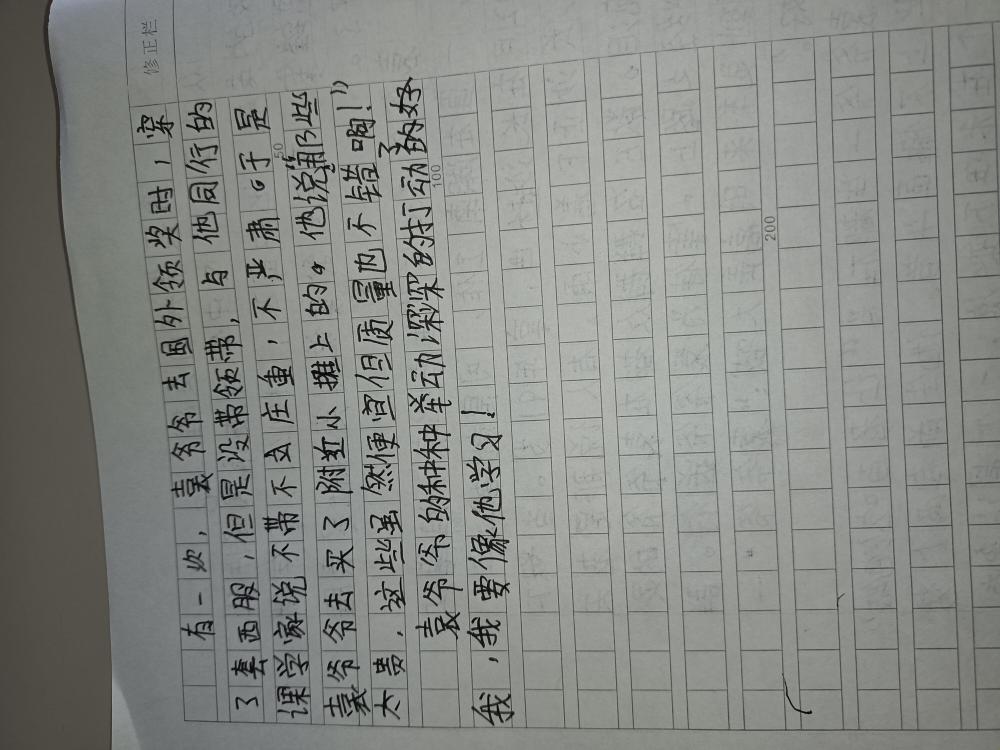 修正栏
有一次，袁爷爷去国外领奖时，穿
了套西服，但是没带领带，与他同行的
课学家说不带不文庄重，不严肃。于是
50
袁爷爷去买了附近小摊上的。他说“那些
太贵，这些虽然便宜但质量也不错啊！”
袁爷爷的种种举动深深的打动了的好
100
我，我要像他学习！
200